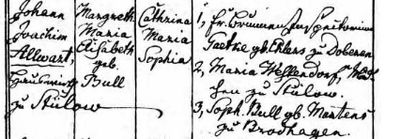 Johann
Joachim
Allwart,
zu Stülow
Margreth
Maria
Elisabeth
geb.
Bull
Cathrina
Maria
Sophia
1, Fr.
Taetke gb. Ehlers zu Doberan
2, Maria Wellendorf,
zu Stülow.
3, Soph. Bull gb. Martens
zu Brodhagen